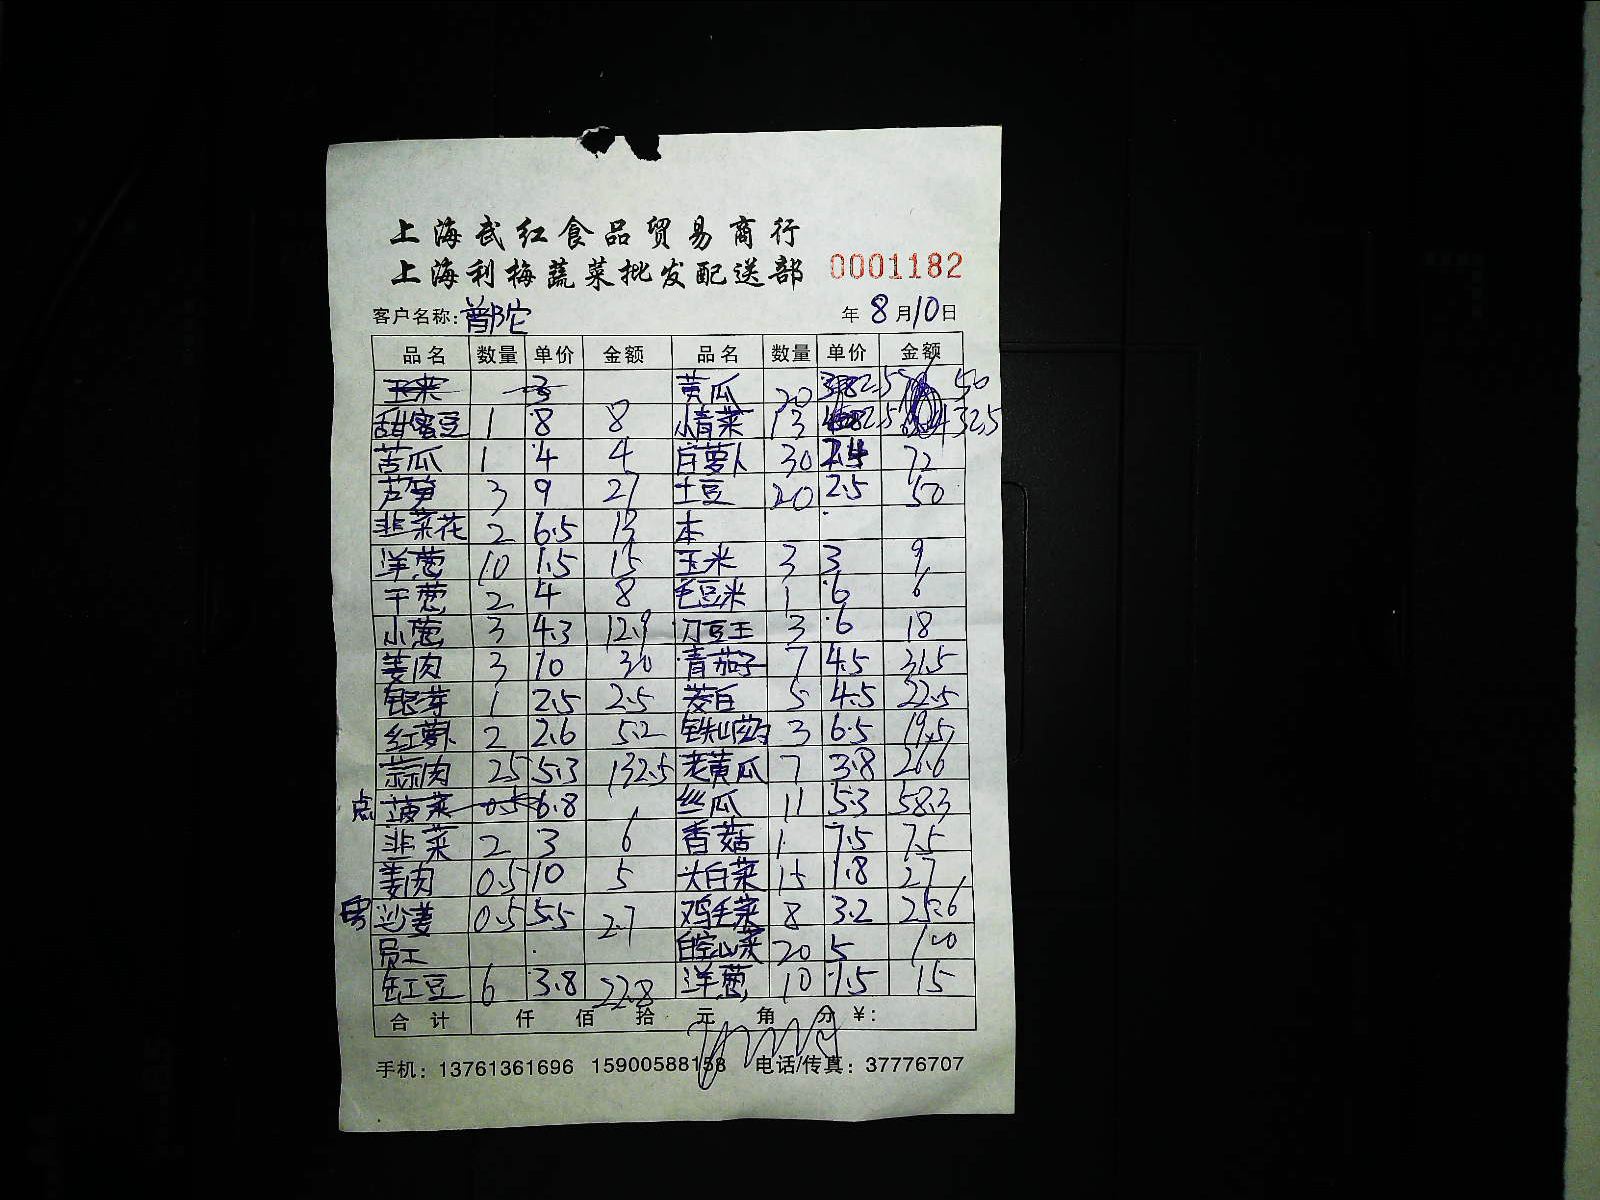 上海武红食品贸易商行
上海利梅蔬菜批发配送部 0001182
客户名称:普陀 年8月10日
品名 数量 单价 金额 品名 数量 单价 金额
玉米 3 黄瓜 20 2.5 50
甜蜜豆 1 8 8 小青菜 13 2.5 32.5
苦瓜 1 4 4 白萝卜 30 2.4 72
芦笋 3 9 27 土豆 20 2.5 50
韭菜花 2 6.5 13 本
洋葱 10 1.5 15 玉米 3 3 9
干葱 2 4 8 毛豆米 1 6 6
小葱 3 4.3 12.9 刀豆王 3 6 18
姜肉 3 10 30 青茄子 7 4.5 31.5
银芽 1 2.5 2.5 茭白 5 4.5 22.5
红萝卜 2 2.6 5.2 铁山药 3 6.5 19.5
蒜肉 25 5.3 132.5 老黄瓜 7 3.8 26.6
点 菠菜 0.5 6.8 丝瓜 11 5.3 58.3
韭菜 2 3 6 香菇 1 7.5 7.5
姜肉 0.5 10 5 大白菜 15 1.8 27
沙姜 0.5 5.5 2.7 鸡毛菜 8 3.2 25.6
员工 白空心菜 20 5 100
豇豆 6 3.8 22.8 洋葱 10 1.5 15
合计 仟 佰 拾 元 角 分 ¥:
手机:13761361696 15900588158 电话/传真:37776707